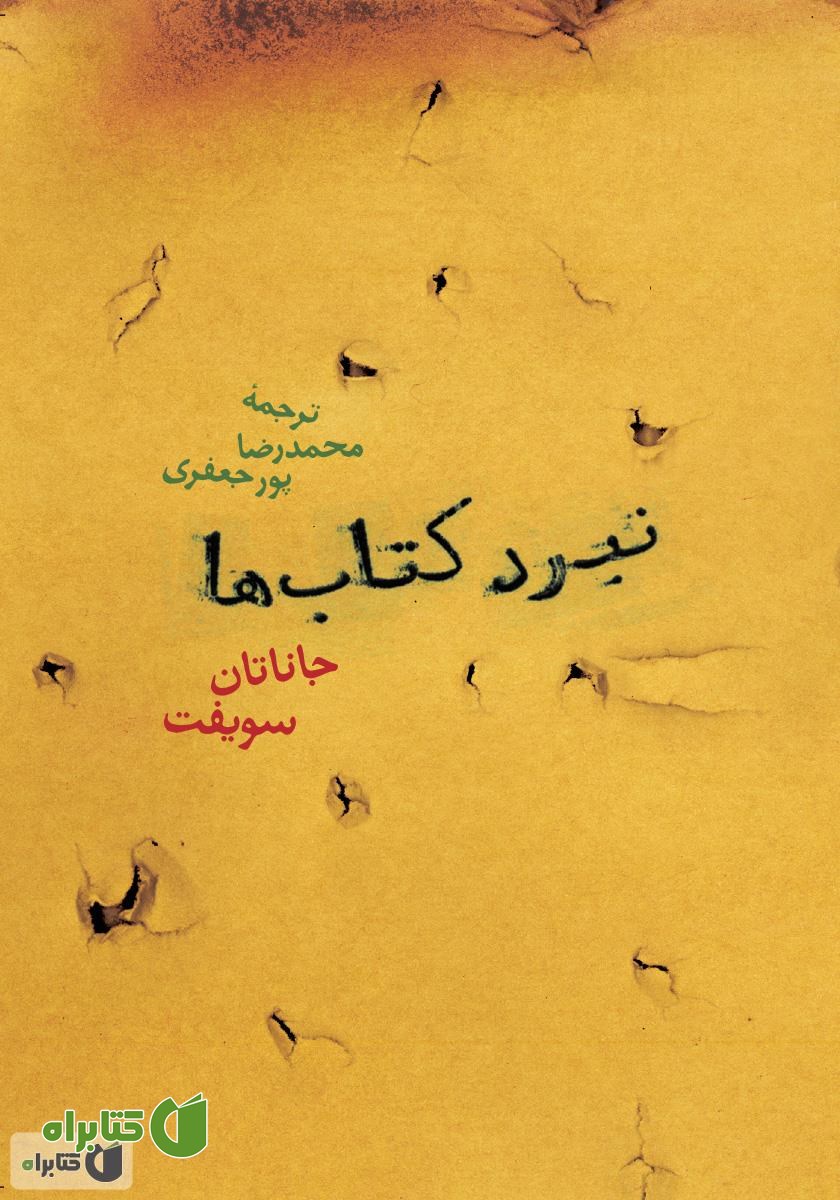 ترجمهٔ
محمدرضا
پورجعفری
نبرد کتاب‌ها
جاناتان
سویفت
کتابراه
کتابراه